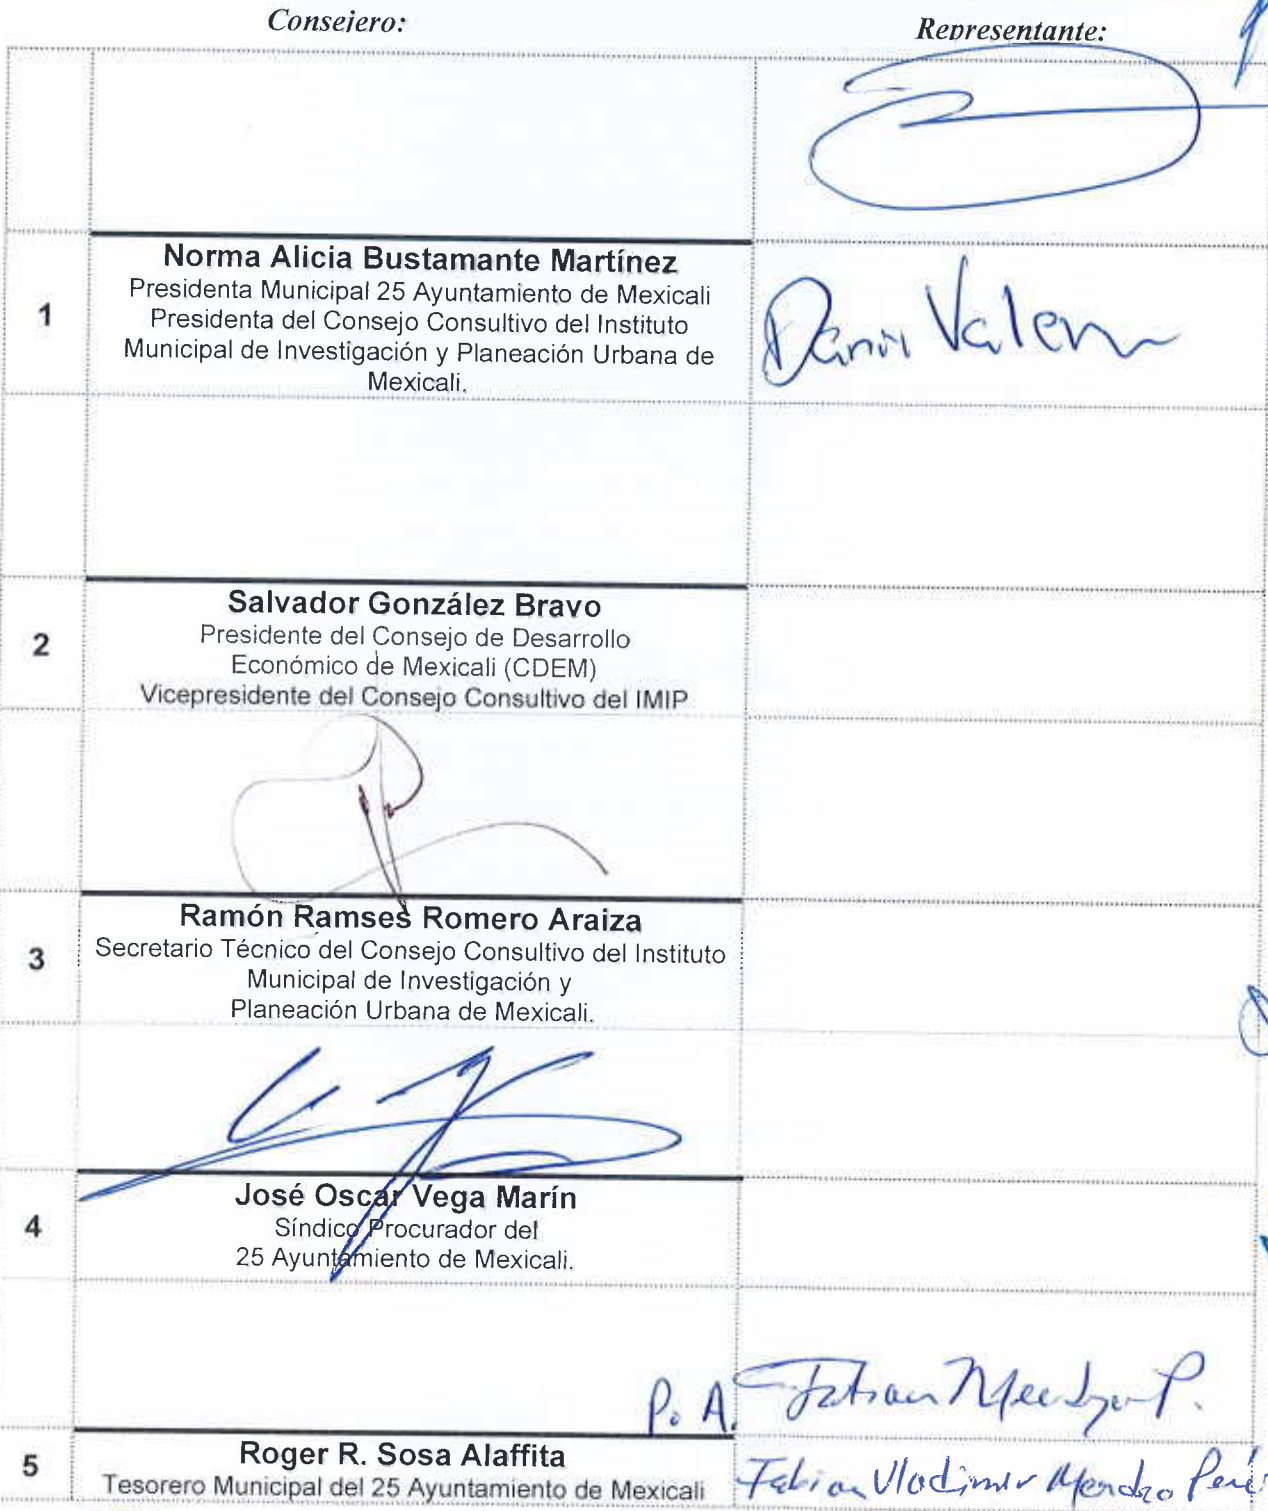 Consejero:
Representante:
Norma Alicia Bustamante Martínez
1
Presidenta Municipal 25 Ayuntamiento de Mexicali
Presidenta del Consejo Consultivo del Instituto
Municipal de Investigación y Planeación Urbana de
Mexicali.
Valen
Salvador González Bravo
2
Presidente del Consejo de Desarrollo
Económico de Mexicali (CDEM)
Vicepresidente del Consejo Consultivo del IMIP
Ramón Ramses Romero Araiza
3
Secretario Técnico del Consejo Consultivo del Instituto
Municipal de Investigación y
Planeación Urbana de Mexicali.
José Oscar Vega Marín
4
Síndico Procurador del
25 Ayuntamiento de Mexicali.
P. A. Fabian P.
5
Roger R. Sosa Alaffita
Tesorero Municipal del 25 Ayuntamiento de Mexicali
Fabian Vladimir